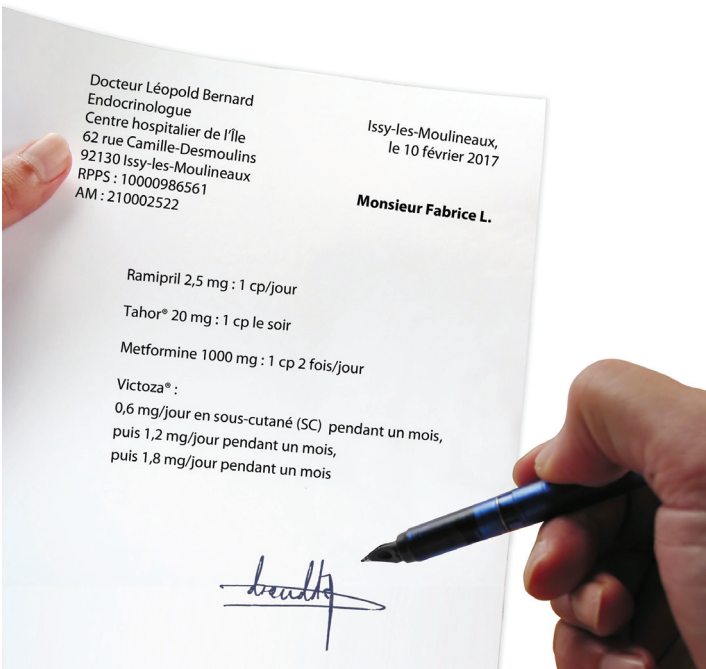 Docteur Léopold Bernard
Endocrinologue
Centre hospitalier de l'Île
62 rue Camille-Desmoulins
92130 Issy-les-Moulineaux
RPPS : 10000986561
AM : 210002522
Issy-les-Moulineaux,
le 10 février 2017
Monsieur Fabrice L.
Ramipril 2,5 mg : 1 cp/jour
Tahor® 20 mg : 1 cp le soir
Metformine 1000 mg : 1 cp 2 fois/jour
Victoza® :
0,6 mg/jour en sous-cutané (SC) pendant un mois,
puis 1,2 mg/jour pendant un mois,
puis 1,8 mg/jour pendant un mois